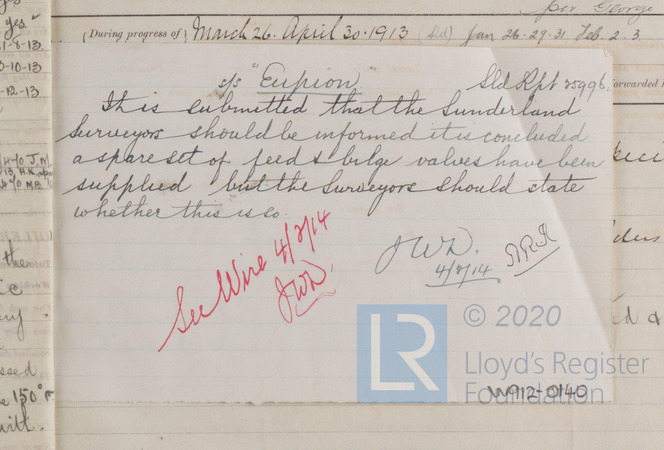 per George
During progress of March 26. April 30. 1913 (Sld) Jan 26-29-31 Feb. 2. 3.
yes
1-8-13
3-10-13
-12-13
s/s "Eupion" Sld Rpt 25996.
orwarded
It is submitted that the Sunderland
Surveyors should be informed it is concluded
a spare set of feed & bilge valves have been
supplied but the Surveyors should state
whether this is so.
See Wire 4/2/14
JWD.
JWD.
4/2/14
the
ssed
150°
LR
© 2020
Lloyd's Register
Foundation
W912-0140